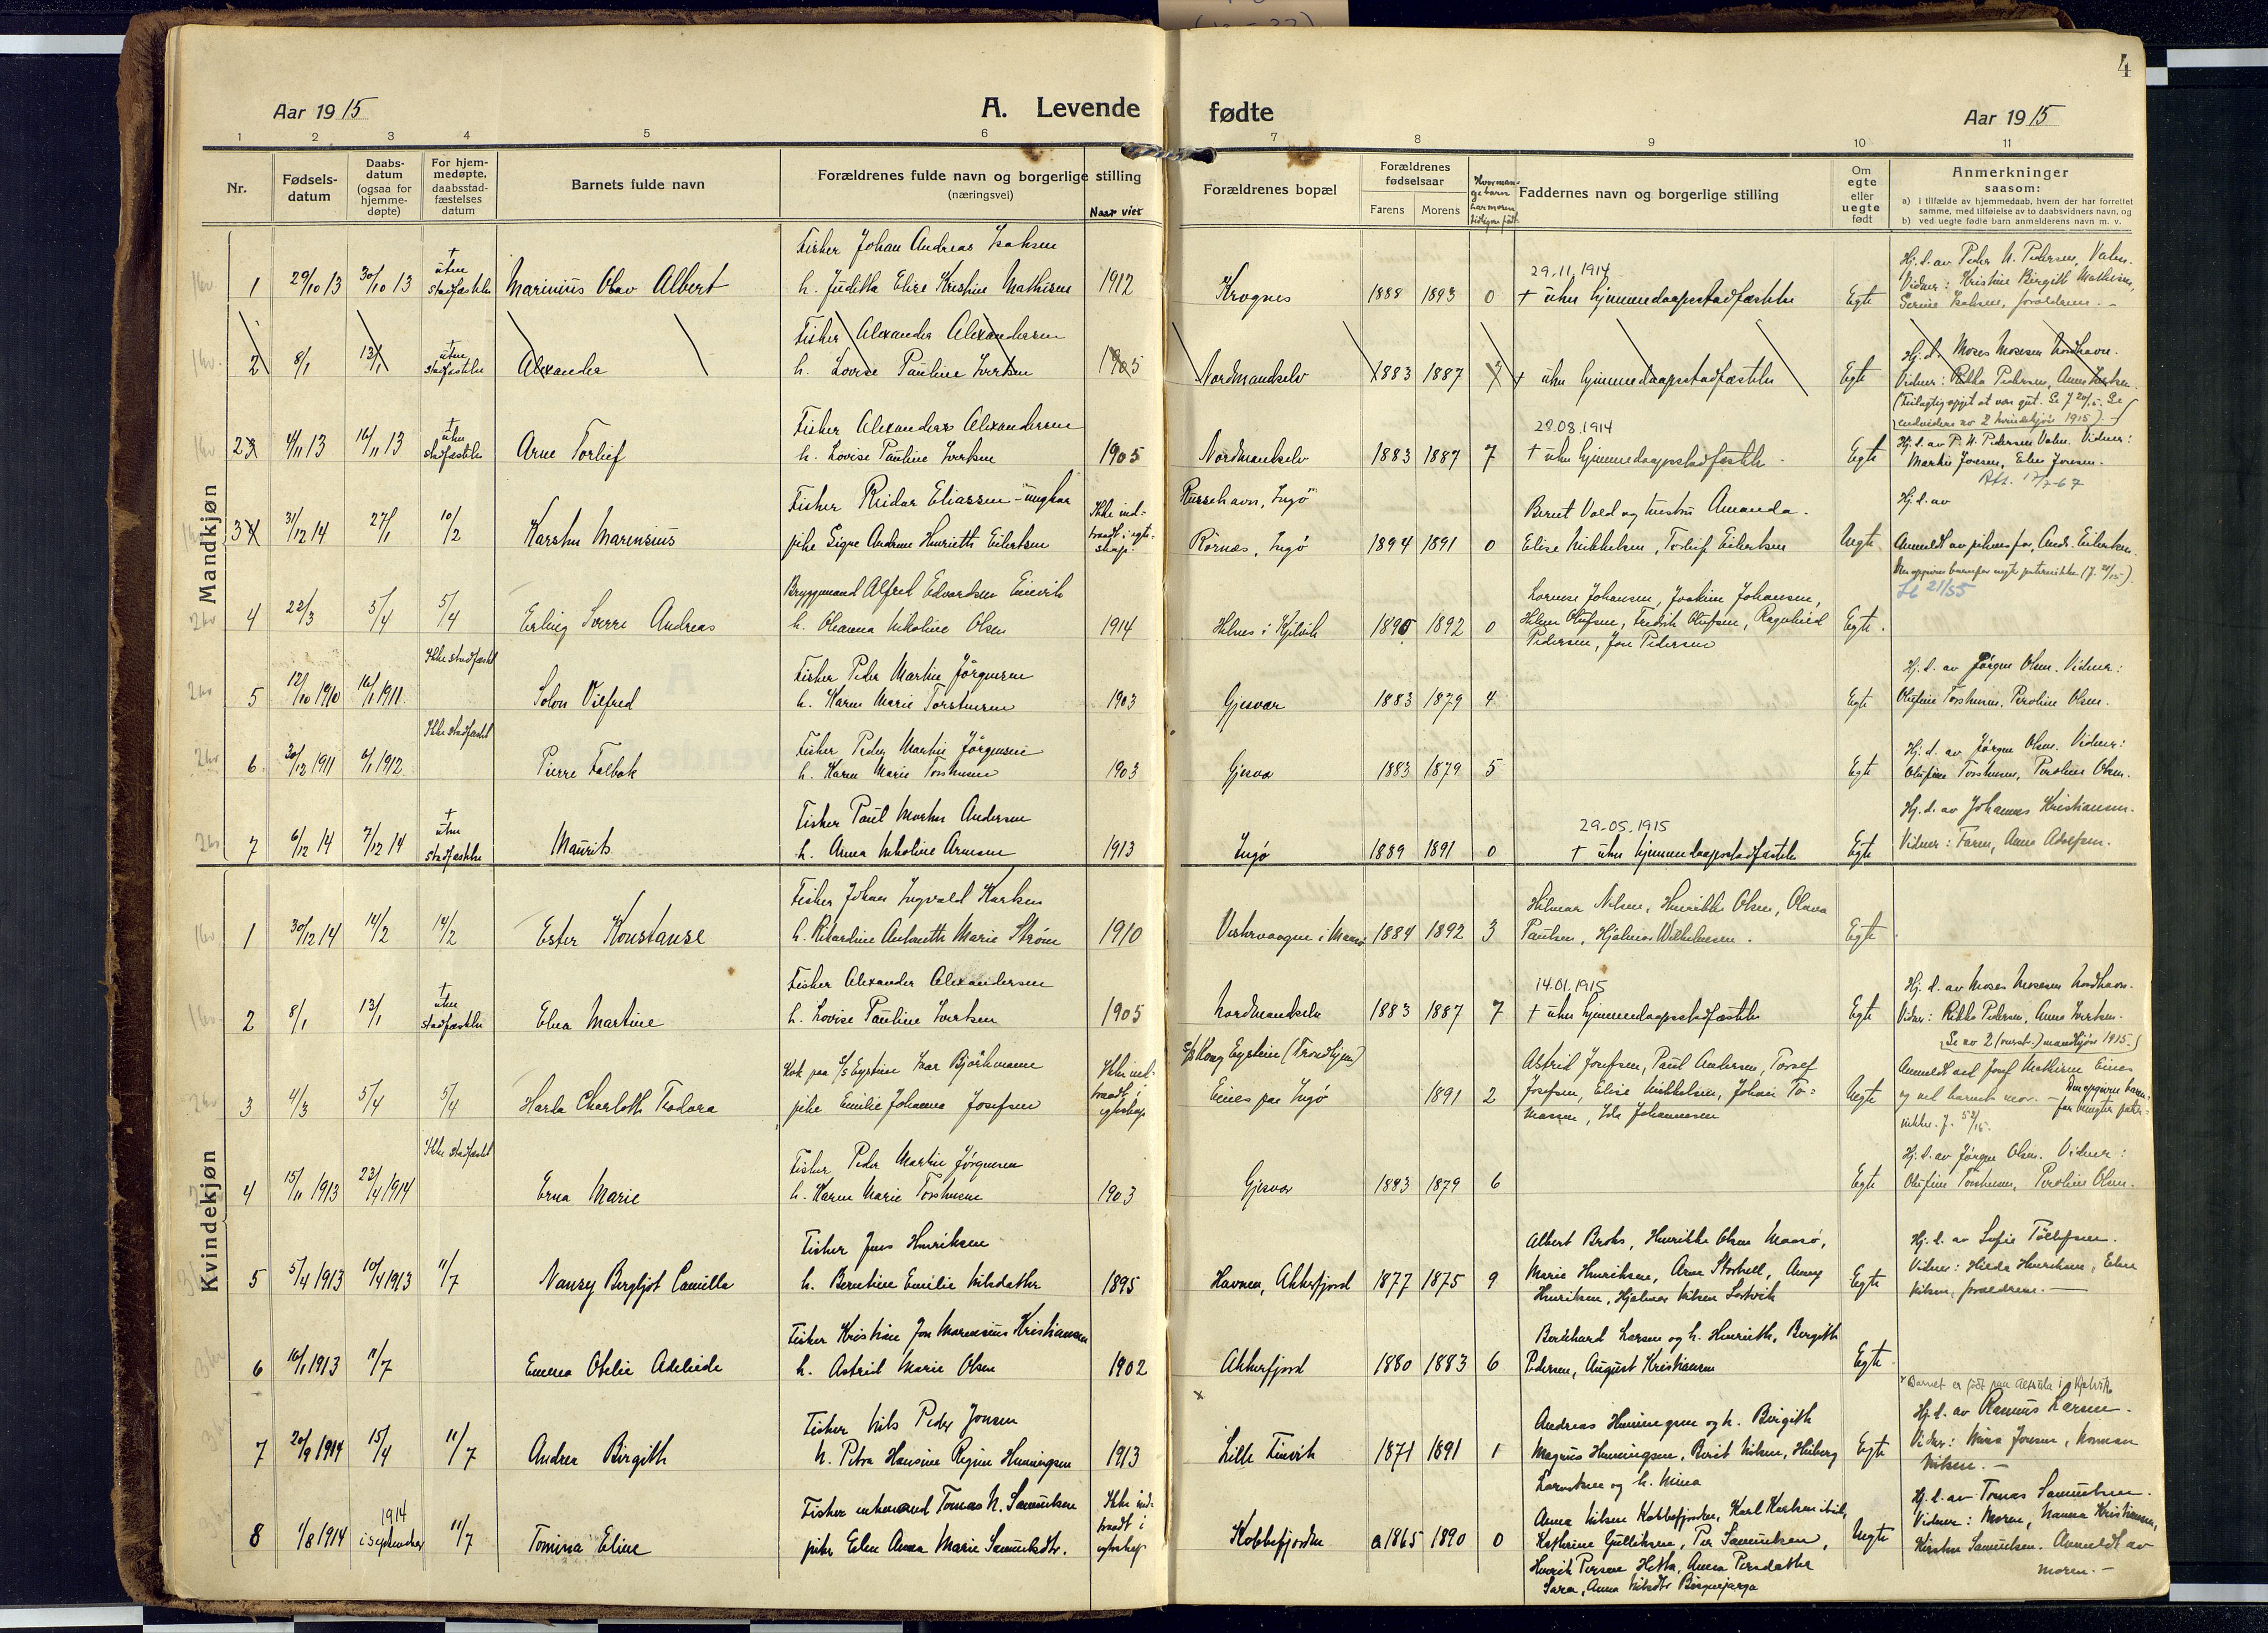 4
Aar 1915
A. Levende fødte
Aar 1915
1 2 3 4 5 6 7 8 9 10 11
Nr.
Fødsels-
datum
Daabs-
datum
(ogsaa for
hjemme-
døpte)
For hjem-
medøpte,
daabsstad-
fæstelses
datum
Barnets fulde navn
Forældrenes fulde navn og borgerlige stilling
(næringsvei)
Naar viet
Forældrenes bopæl
Forældrenes
fødselsaar
Farens Morens
Hvorman-
ge barn
har moren
tidligere født
Faddernes navn og borgerlige stilling
Om
egte
eller
uegte
født
Anmerkninger
saasom:
a) i tilfælde av hjemmedaab, hvem der har forrettet
samme, med tilføielse av to daabsvidners navn, og
b) ved uegte fødte barn anmelderens navn m. v.
Mandkjøn
1 29/10 13 30/10 13 † uten stadfæstelse Marinius Olav Albert
Fisker Johan Andreas Isaksen
h. Juditta Elise Kristine Mathisen 1912
Krognes 1888 1893 0
29.11.1914
† uten hjemmedaapsstadfæstelse Egte
Hj. d. av Peder N. Pedersen, Valen.
Vidner: Kristine Birgith Mathisen,
Serine Isaksen, forældrene. -
2 8/1 13/1 † uten stadfæstelse Alexander
Fisker Alexander Alexandersen
h. Lovise Pauline Ivertsen 1905
Nordmandselv 1883 1887 7 † uten hjemmedaapsstadfæstelse Egte
Hj. d. Moses Mosesen Nordhavn.
Vidner: Rikka Pedersen, Anna Ivertsen.
(Feilagtig opgit at være gut. Se J 20/15. Se
endvidere no 2 kvindekjøn 1915)
23 4/11 13 16/11 13 † uten stadfæstelse Arne Torleif
Fisker Alexanders Alexandersen
h. Lovise Pauline Ivertsen 1905
Nordmandselv 1883 1887 7
28.08.1914
† uten hjemmedaapsstadfæstelse Egte
Hj. d. av P. N. Pedersen Valen. Vidner:
Martin Jonsen, Elen Jonsen.
34 31/12 14 27/1 10/2 Karsten Marensius
Fisker Reidar Eliassen - ungkar
pike Signe Andrea Henriette Eilertsen
Ikke ind-
traadt i egte-
skap.
Russehavn, Ingø
Rørnæs, Ingø 1894 1891 0
Berut Vold og hustru Amanda.
Elise Mikkelsen, Torleif Eilertsen Uegte
Hj. d. av
Anmeldt av pikens far, Andr. Eilertsen.
Den opgivne barnefar negter paternitetet (J. 21/15).
Se 21/55
4 22/3 5/4 5/4 Erling Sverre Andreas
Bryggemand Alfred Edvardsen Einevik
h. Oleanna Nikoline Olsen 1914
Helnes i Kjelvik 1895 1892 0
Lornse Johansen, Joakim Johansen,
Hilma Olufsen, Fredrik Olufsen, Ragnhild
Pedersen, Jon Pedersen Egte
5 12/10 1910 16/1 1911 Ikke stadfæstet Solon Vilfred
Fisker Peder Martin Jørgensen
h. Karen Marie Torstensen 1903
Gjesvær 1883 1879 4 Egte
Hj. d. av Jørgen Olsen. Vidner:
Olufine Torstensen, Peroline Olsen.
6 30/12 1911 6/1 1912 Ikke stadfæstet Pierre Falbak
Fisker Peder Martin Jørgensen
h. Karen Marie Torstensen 1903
Gjesvær 1883 1879 5 Egte
Hj. d. av Jørgen Olsen. Vidner:
Olufine Torstensen, Peroline Olsen.
7 6/12 14 7/12 14 † uten stadfæstelse Maurits
Fisker Paul Morten Andersen
h. Anna Nikoline Arnesen 1913
Ingø 1889 1891 0
29.05.1915
† uten hjemmedaapsstadfæstelse Egte
Hj. d. av Johannes Kristiansen.
Vidner: Faren, Anna Adolfsen.
Kvindekjøn
1 30/12 14 14/2 14/2 Ester Konstanse
Fisker Johan Ingvald Karlsen
h. Rikardine Antonette Marie Strøm 1910
Vestervaagen i Maasø 1884 1892 3
Hilmar Nilsen, Henrikke Olsen, Olava
Paulsen, Hjalmar Wilhelmsen. Egte
2 8/1 13/1 † uten stadfæstelse Elna Martine
Fisker Alexander Alexandersen
h. Lovise Pauline Ivertsen 1905
Nordmandselv 1883 1887 7
14.01.1915
† uten hjemmedaapsstadfæstelse Egte
Hj. d. av Moses Mosesen Nordhavn.
Vidner: Rikka Pedersen, Anna Ivertsen.
Se no 2 (overstr.) mandkjøn 1915.
3 4/3 5/4 5/4 Harla Charlotte Teodora
Kok paa S/S Eystein Ivar Bjørkmann
pike Emilie Johanna Josefsen
Ikke ind-
traadt i
egteskap
S/S Kong Eystein (Trondhjem)
Eines paa Ingø 1891 2
Astrid Josefsen, Paul Andersen, Torolf
Josefsen, Elise Mikkelsen, Johan To-
massen, Ida Johannesen Uegte
Anmeldt ved Josef Mathisen Eines
og ved barnets mor. - Den opgivne barne-
far benegter pater-
nitetet. J. 52/15.
4 15/11 1913 23/4 1914 Ikke stadfæstet Erna Marie
Fisker Peder Martin Jørgensen
h. Karen Marie Torstensen 1903
Gjesvær 1883 1879 6 Egte
Hj. d. av Jørgen Olsen. Vidner:
Olufine Torstensen, Peroline Olsen.
5 5/4 1913 10/4 1913 11/7 Nanzy Bergljot Camilla
Fisker Jens Henriksen
h. Berntine Emilie Nilsdatter 1895
Havnen, Akkerfjord 1877 1875 9
Albert Broks, Henrikke Olsen Maasø,
Marie Henriksen, Arne Storbell, Anny
Henriksen, Hjalmar Nilsen Sørvik Egte
Hj. d. av Sofie Tollefsen.
Vidner: Hilda Henriksen, Eline
Nilsen, forældrene. -
6 16/1 1913 11/7 Emma Otelie Adeleide
Fisker Kristian Jon Marensius Kristiansen
h. Astrid Marie Olsen 1902
Akkerfjord 1880 1883 6
Berthard Larsen og h. Henriette, Bergith
Pedersen, August Kristiansen Egte
7 20/9 1914 15/4 11/7 Andrea Birgith
Fisker Nils Peder Jonsen
h. Petra Hansine Regine Henningsen 1913
x
Lille Finvik 1871 1891 1
Andreas Henningsen og h. Birgith
Magnus Henningsen, Berit Nilsen, Heiberg
Larsen og h. Mina Egte
x Barnet er født paa Altsula i Kjelvik
Hj. d. av Rasmus Larsen.
Vidner: Mina Jonsen, Norman
Nilsen. -
8 1/8 1914 1914 i september 11/7 Tomina Eline
Fisker enkemand Tomas N. Samuelsen
pike Elen Anna Marie Samuelsdtr.
Ikke ind-
traadt i
egteskap
Kobbefjorden 1865 1890 0
Anna Nilsen Kobbefjorden, Karl Karlsen ibid.,
Kathrine Gulliksen, Per Samuelsen,
Henrik Persen Hetta, Anna Persdatter
Sara, Anna Nilsdtr Uegte
Hj. d. av Tomas Samuelsen.
Vidner: Moren, Nanna Kristiansen,
Kirsten Samuelsen. Anmeldt av
moren. -